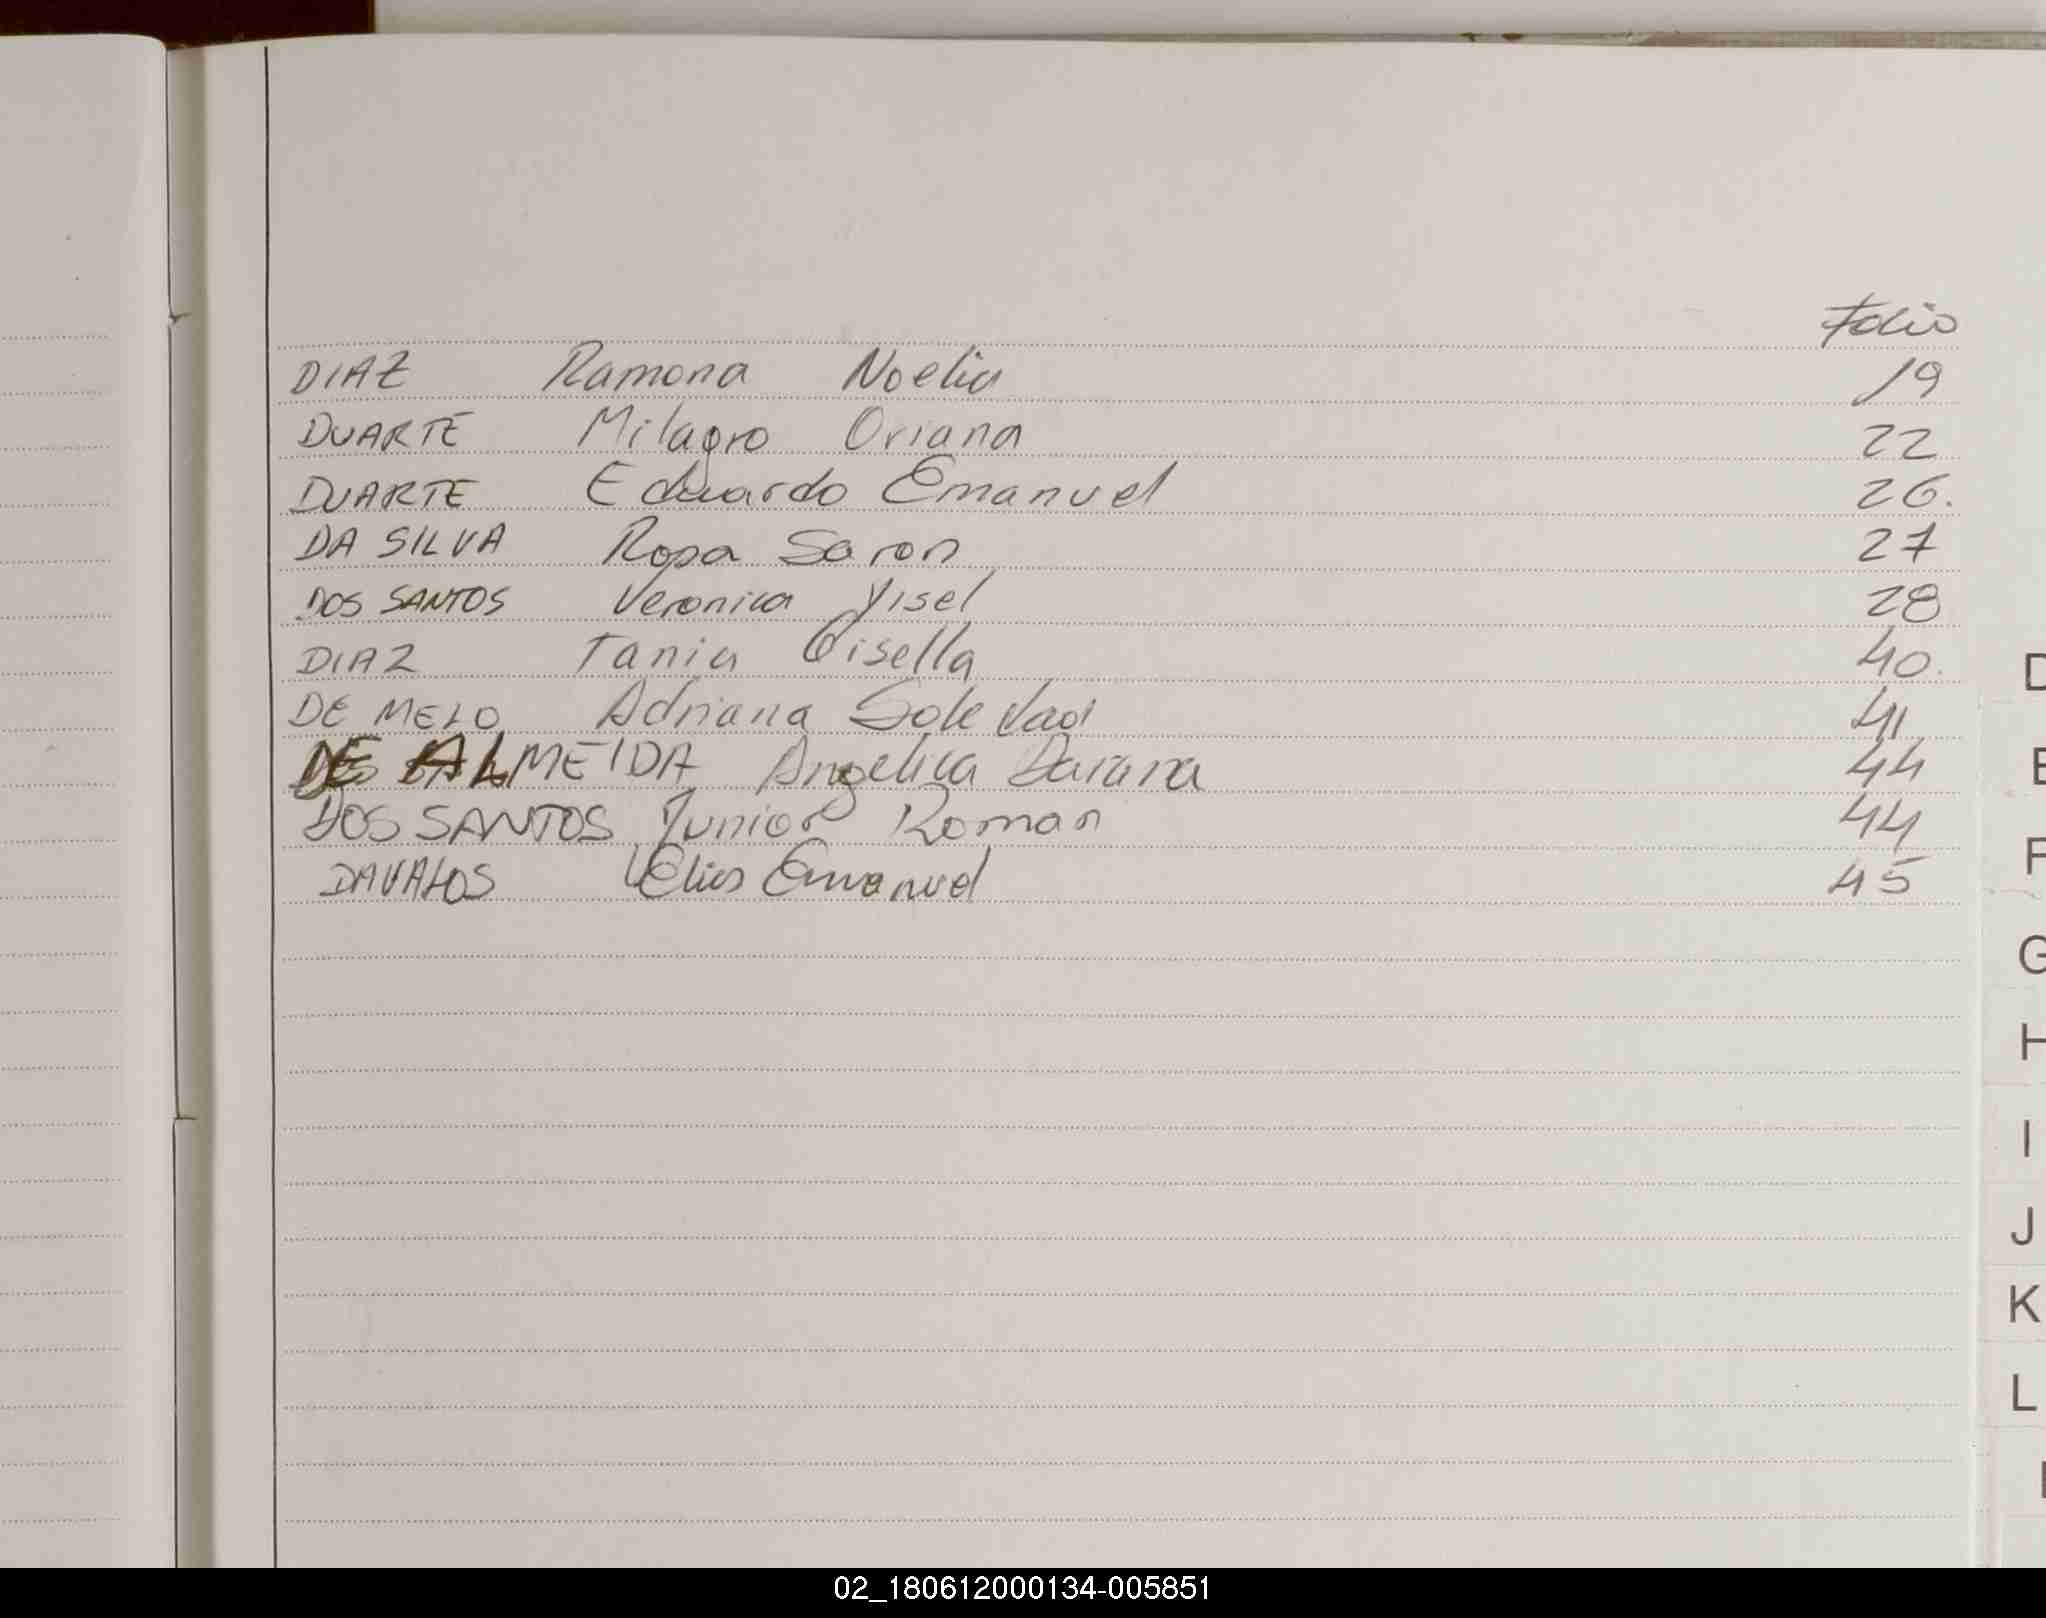 Folio
DIAZ Ramona Noelia 19
DUARTE Milagro Oriana 22
DUARTE Eduardo Emanuel 26.
DA SILVA Rosa Saron 27
DOS SANTOS Veronica Yisel 28
DIAZ Tania Gisella 40.
DE MELO Adriana Soledad 41
DE ALMEIDA Angelica Daiana 44
DOS SANTOS Junior Roman 44
DAVALOS Elias Emanuel 45
D
E
F
G
H
I
J
K
L
02_180612000134-005851